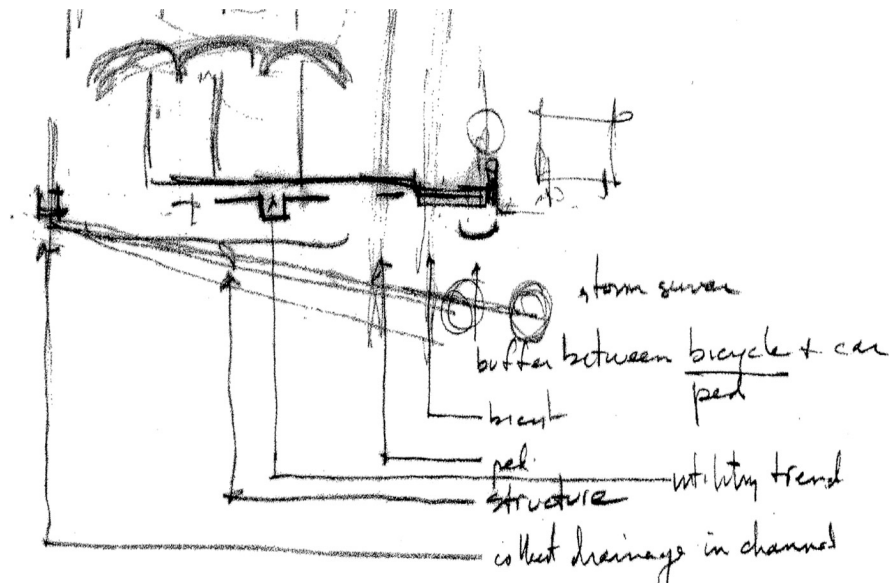 storm sewer
buffer between bicycle + car
ped
bicycl
ped.
utility trend
structure
collect drainage in channel